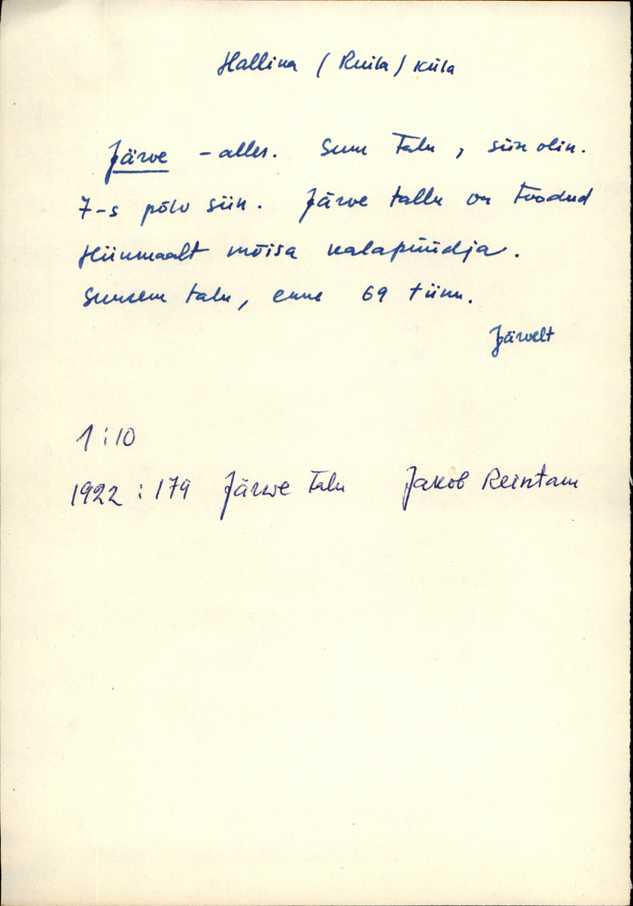 Hallina (Ruila) küla
Järve - alles. Suur talu, siin olin.
7-s põlv siin. Järve tallu on toodud
Hiiumaalt mõisa kalapüüdja.
Suurem talu, enne 69 tiinu.
Järvelt
1:10
1922:179 Järwe talu Jakob Reintam